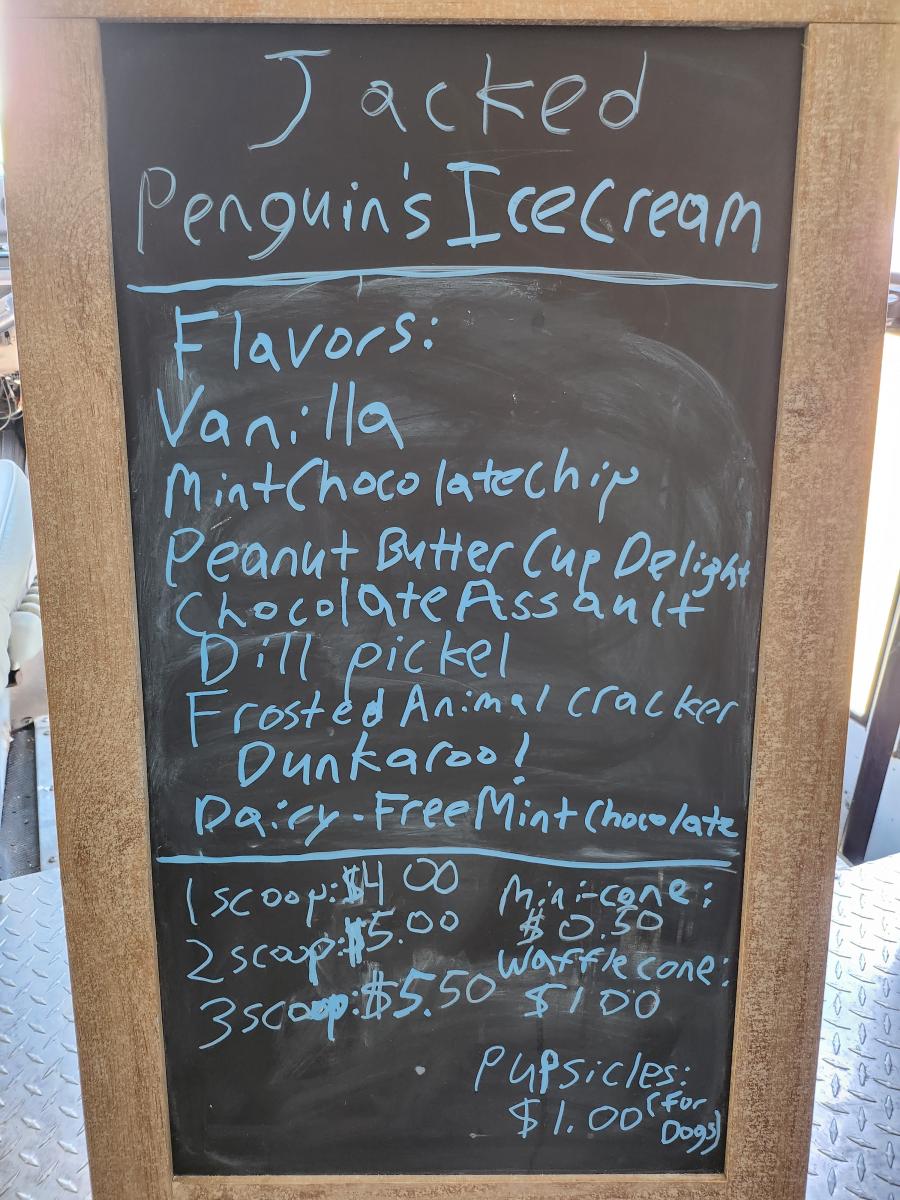 Jacked
Penguin's Icecream
Flavors:
Vanilla
Mint Chocolate chip
Peanut Butter Cup Delight
Chocolate Assault
Dill pickel
Frosted Animal cracker
Dunkaroo!
Dairy-Free Mint Chocolate
1 scoop: $4 00
2 scoop: $5.00
3 scoop: $5.50
Mini-cone:
$0.50
Waffle cone:
$1 00
Pupsicles:
$1.00 (for
Dogs)